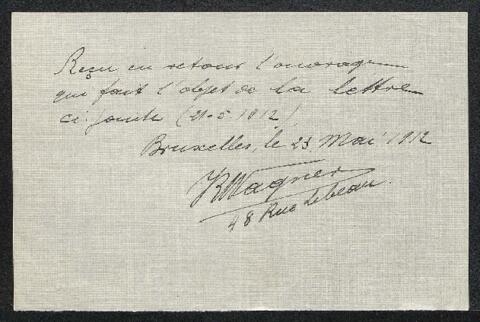 Reçu en retour l'ouvrage
qui fait l'objet de la lettre
ci jointe (21-5 1912)
Bruxelles, le 23 Mai 1912
Wagner
48 Rue Lebeau.